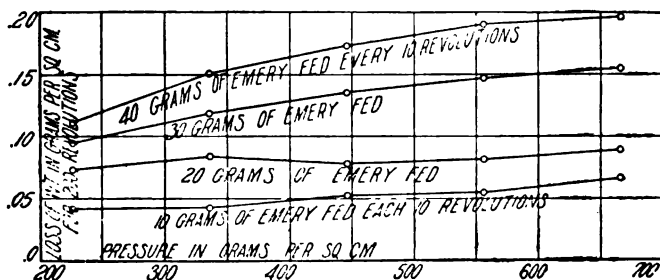 .20
.15
.10
.05
.0
LOSS OF WT. IN GRAMS PER SQ CM.
FOR 200 REVOLUTIONS
40 GRAMS OF EMERY FED EVERY 10 REVOLUTIONS
30 GRAMS OF EMERY FED
20 GRAMS OF EMERY FED
10 GRAMS OF EMERY FED EACH 10 REVOLUTIONS
PRESSURE IN GRAMS PER SQ CM
200 300 400 500 600 700